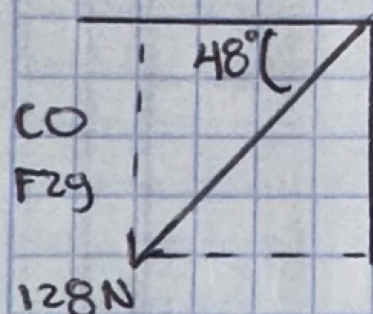 48°
CO
F2g
128N